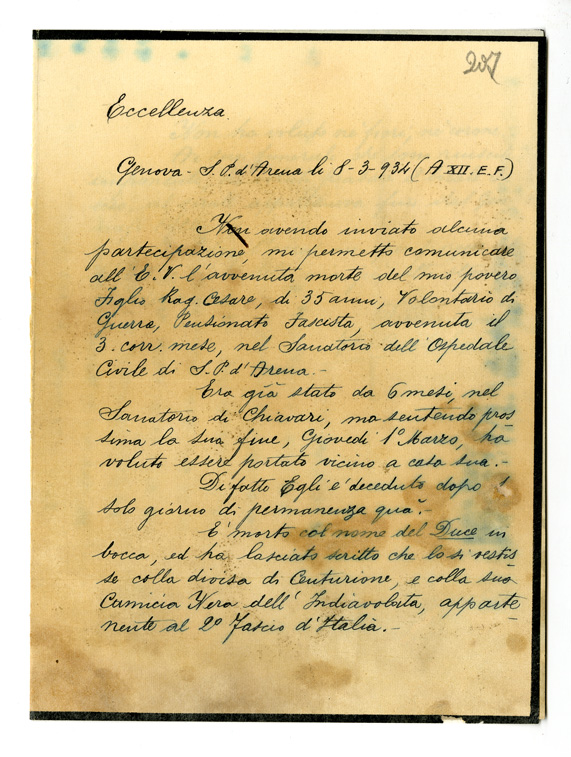 207
Eccellenza
Genova - S. P. d'Arena li 8-3-934 (A XII. E. F.)
Non avendo inviato alcuna
partecipazione, mi permetto comunicare
all' E. V. l'avvenuta morte del mio povero
Figlio Rag. Cesare, di 35 anni, Volontario di
Guerra, Pensionato Fascista, avvenuta il
3. corr. mese, nel Sanatorio dell'Ospedale
Civile di S. P. d'Arena.-
Era già stato da 6 mesi, nel
Sanatorio di Chiavari, ma sentendo pros
sima la sua fine, Giovedì 1° Marzo, ha
voluto essere portato vicino a casa sua.-
Di fatto Egli è deceduto dopo 1
solo giorno di permanenza quà.-
È morto col nome del Duce in
bocca, ed ha lasciato scritto che lo si vestis
se colla divisa di Centurione, e colla sua
Camicia Nera dell' Indiavolata, apparte
nente al 2° Fascio d'Italia.-